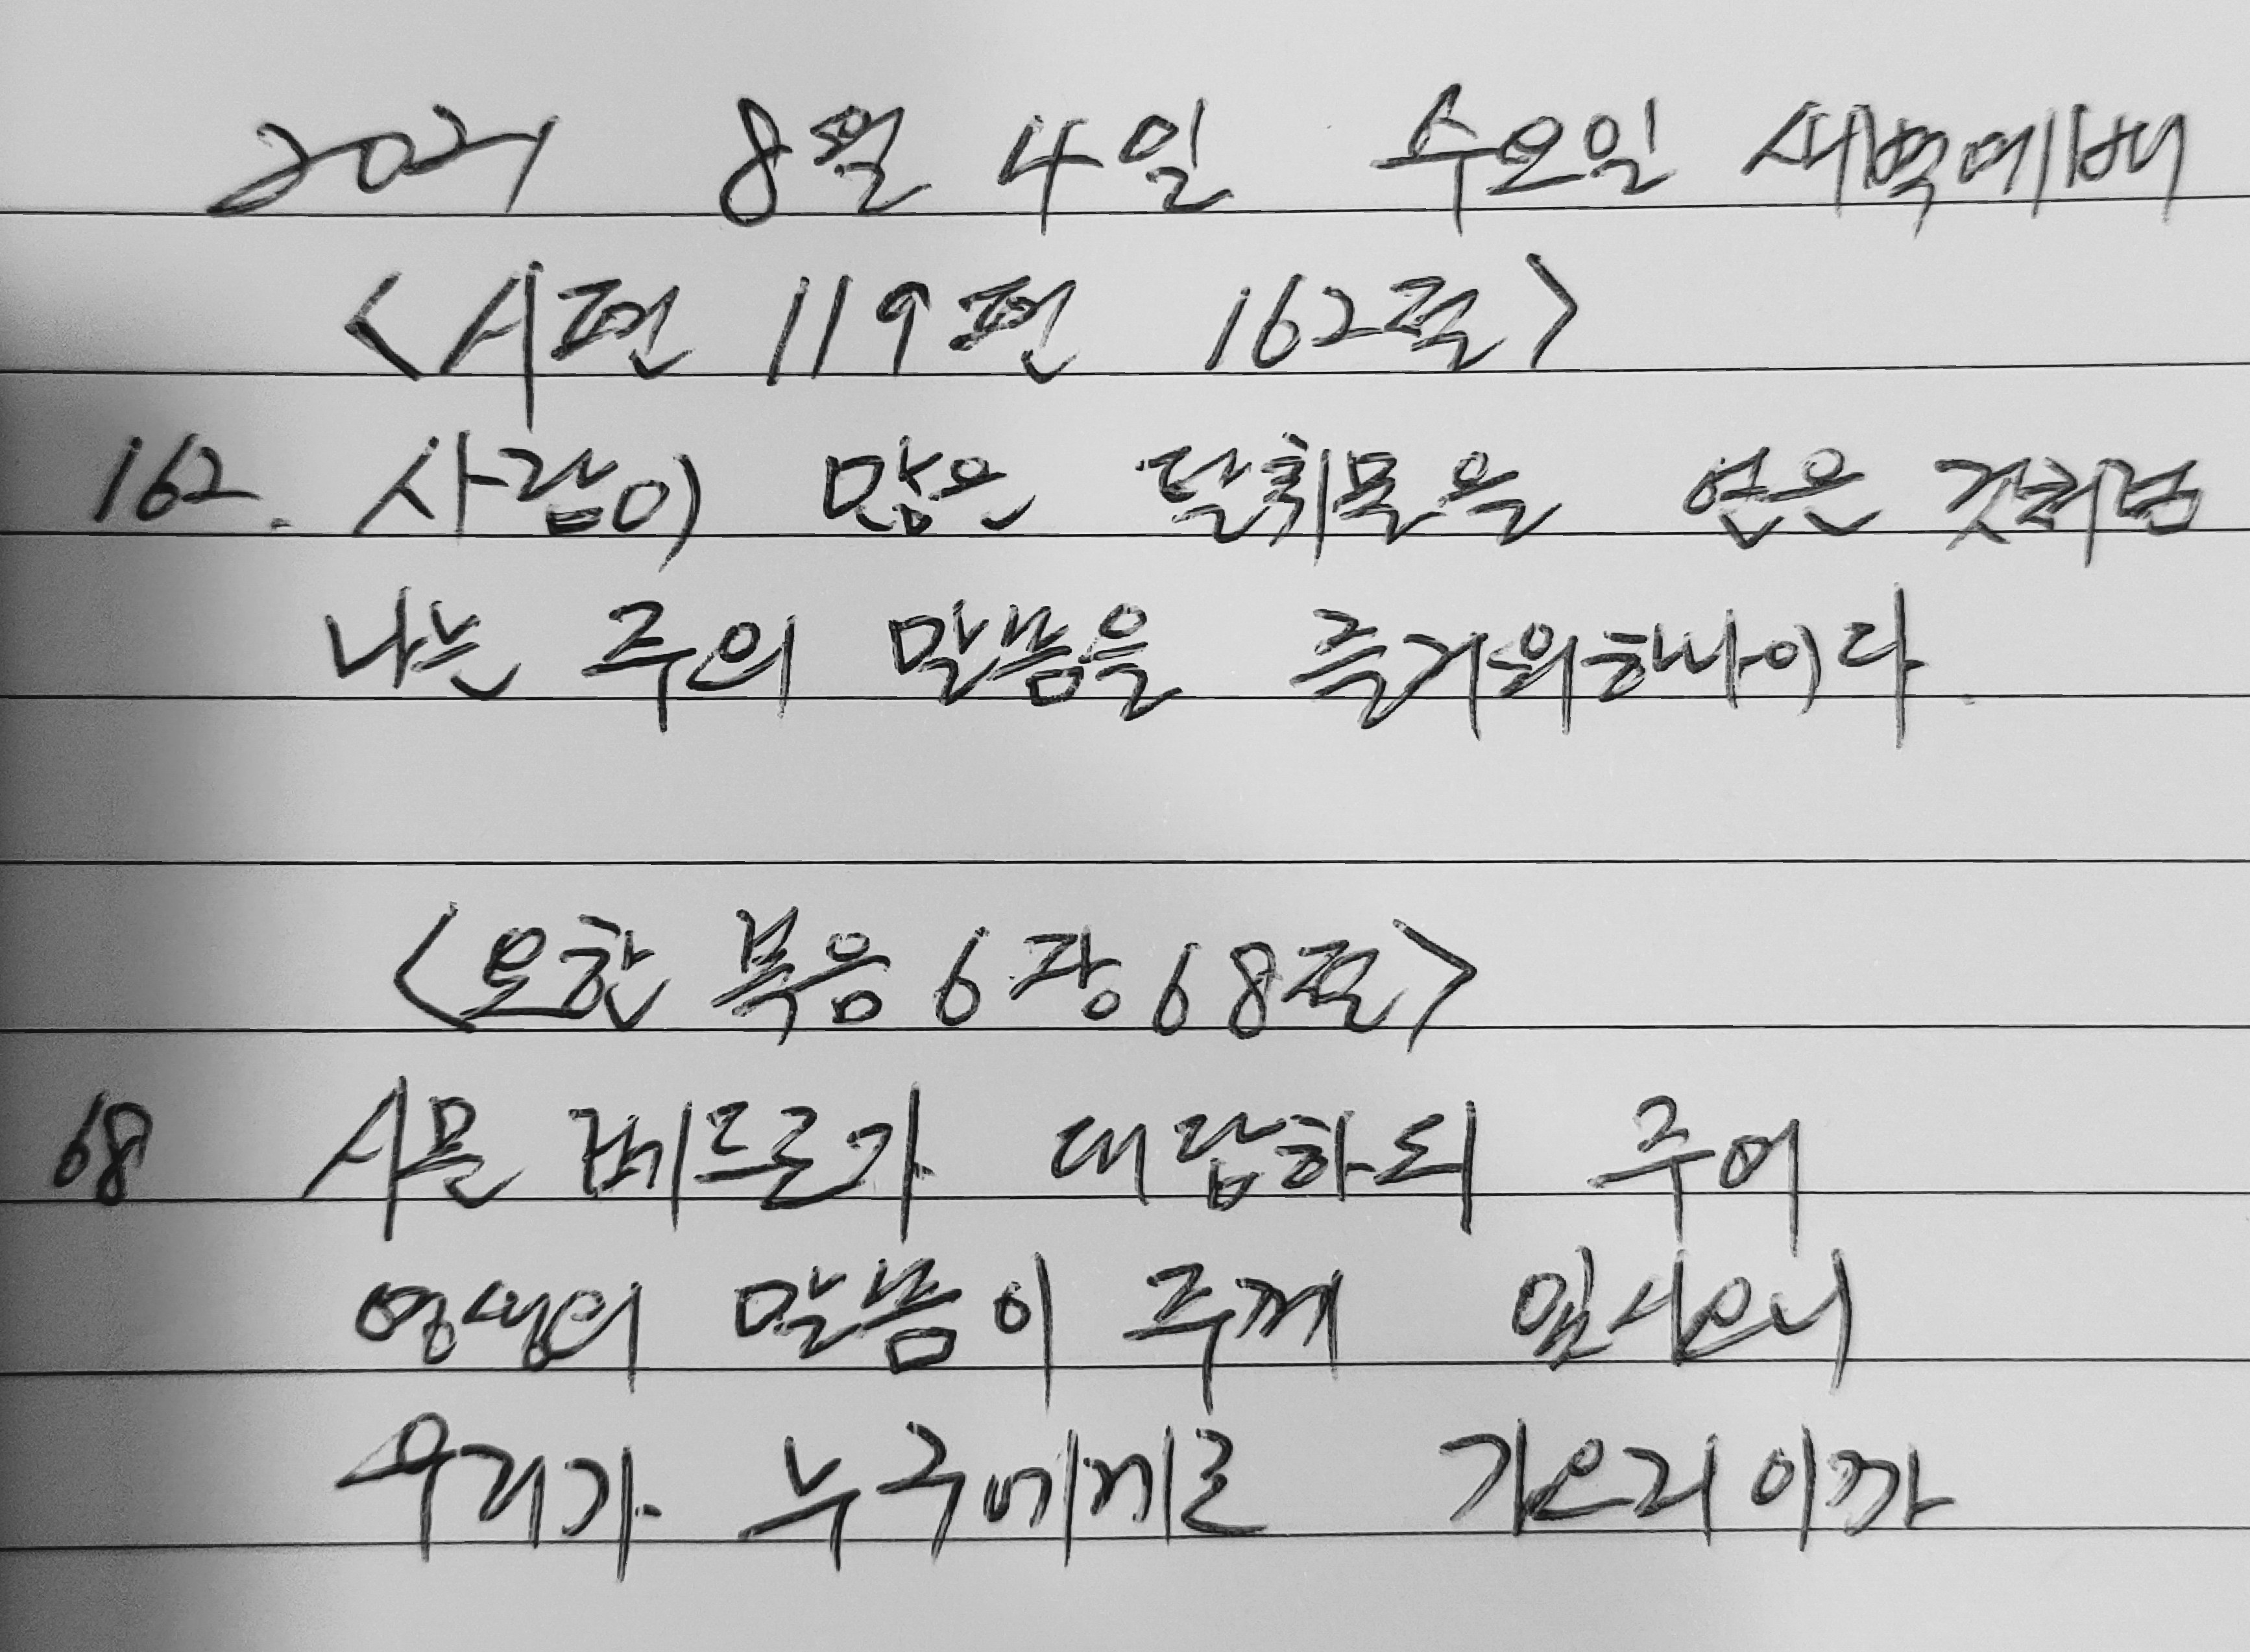 2021 8월 4일 수요일 새벽예배
<시편 119편 162절>
162. 사람이 많은 탈취물을 얻은 것처럼
나는 주의 말씀을 즐거워하나이다
<요한 복음 6장 68절>
68 시몬 베드로가 대답하되 주여
영생의 말씀이 주께 있사오니
우리가 누구에게로 가오리이까